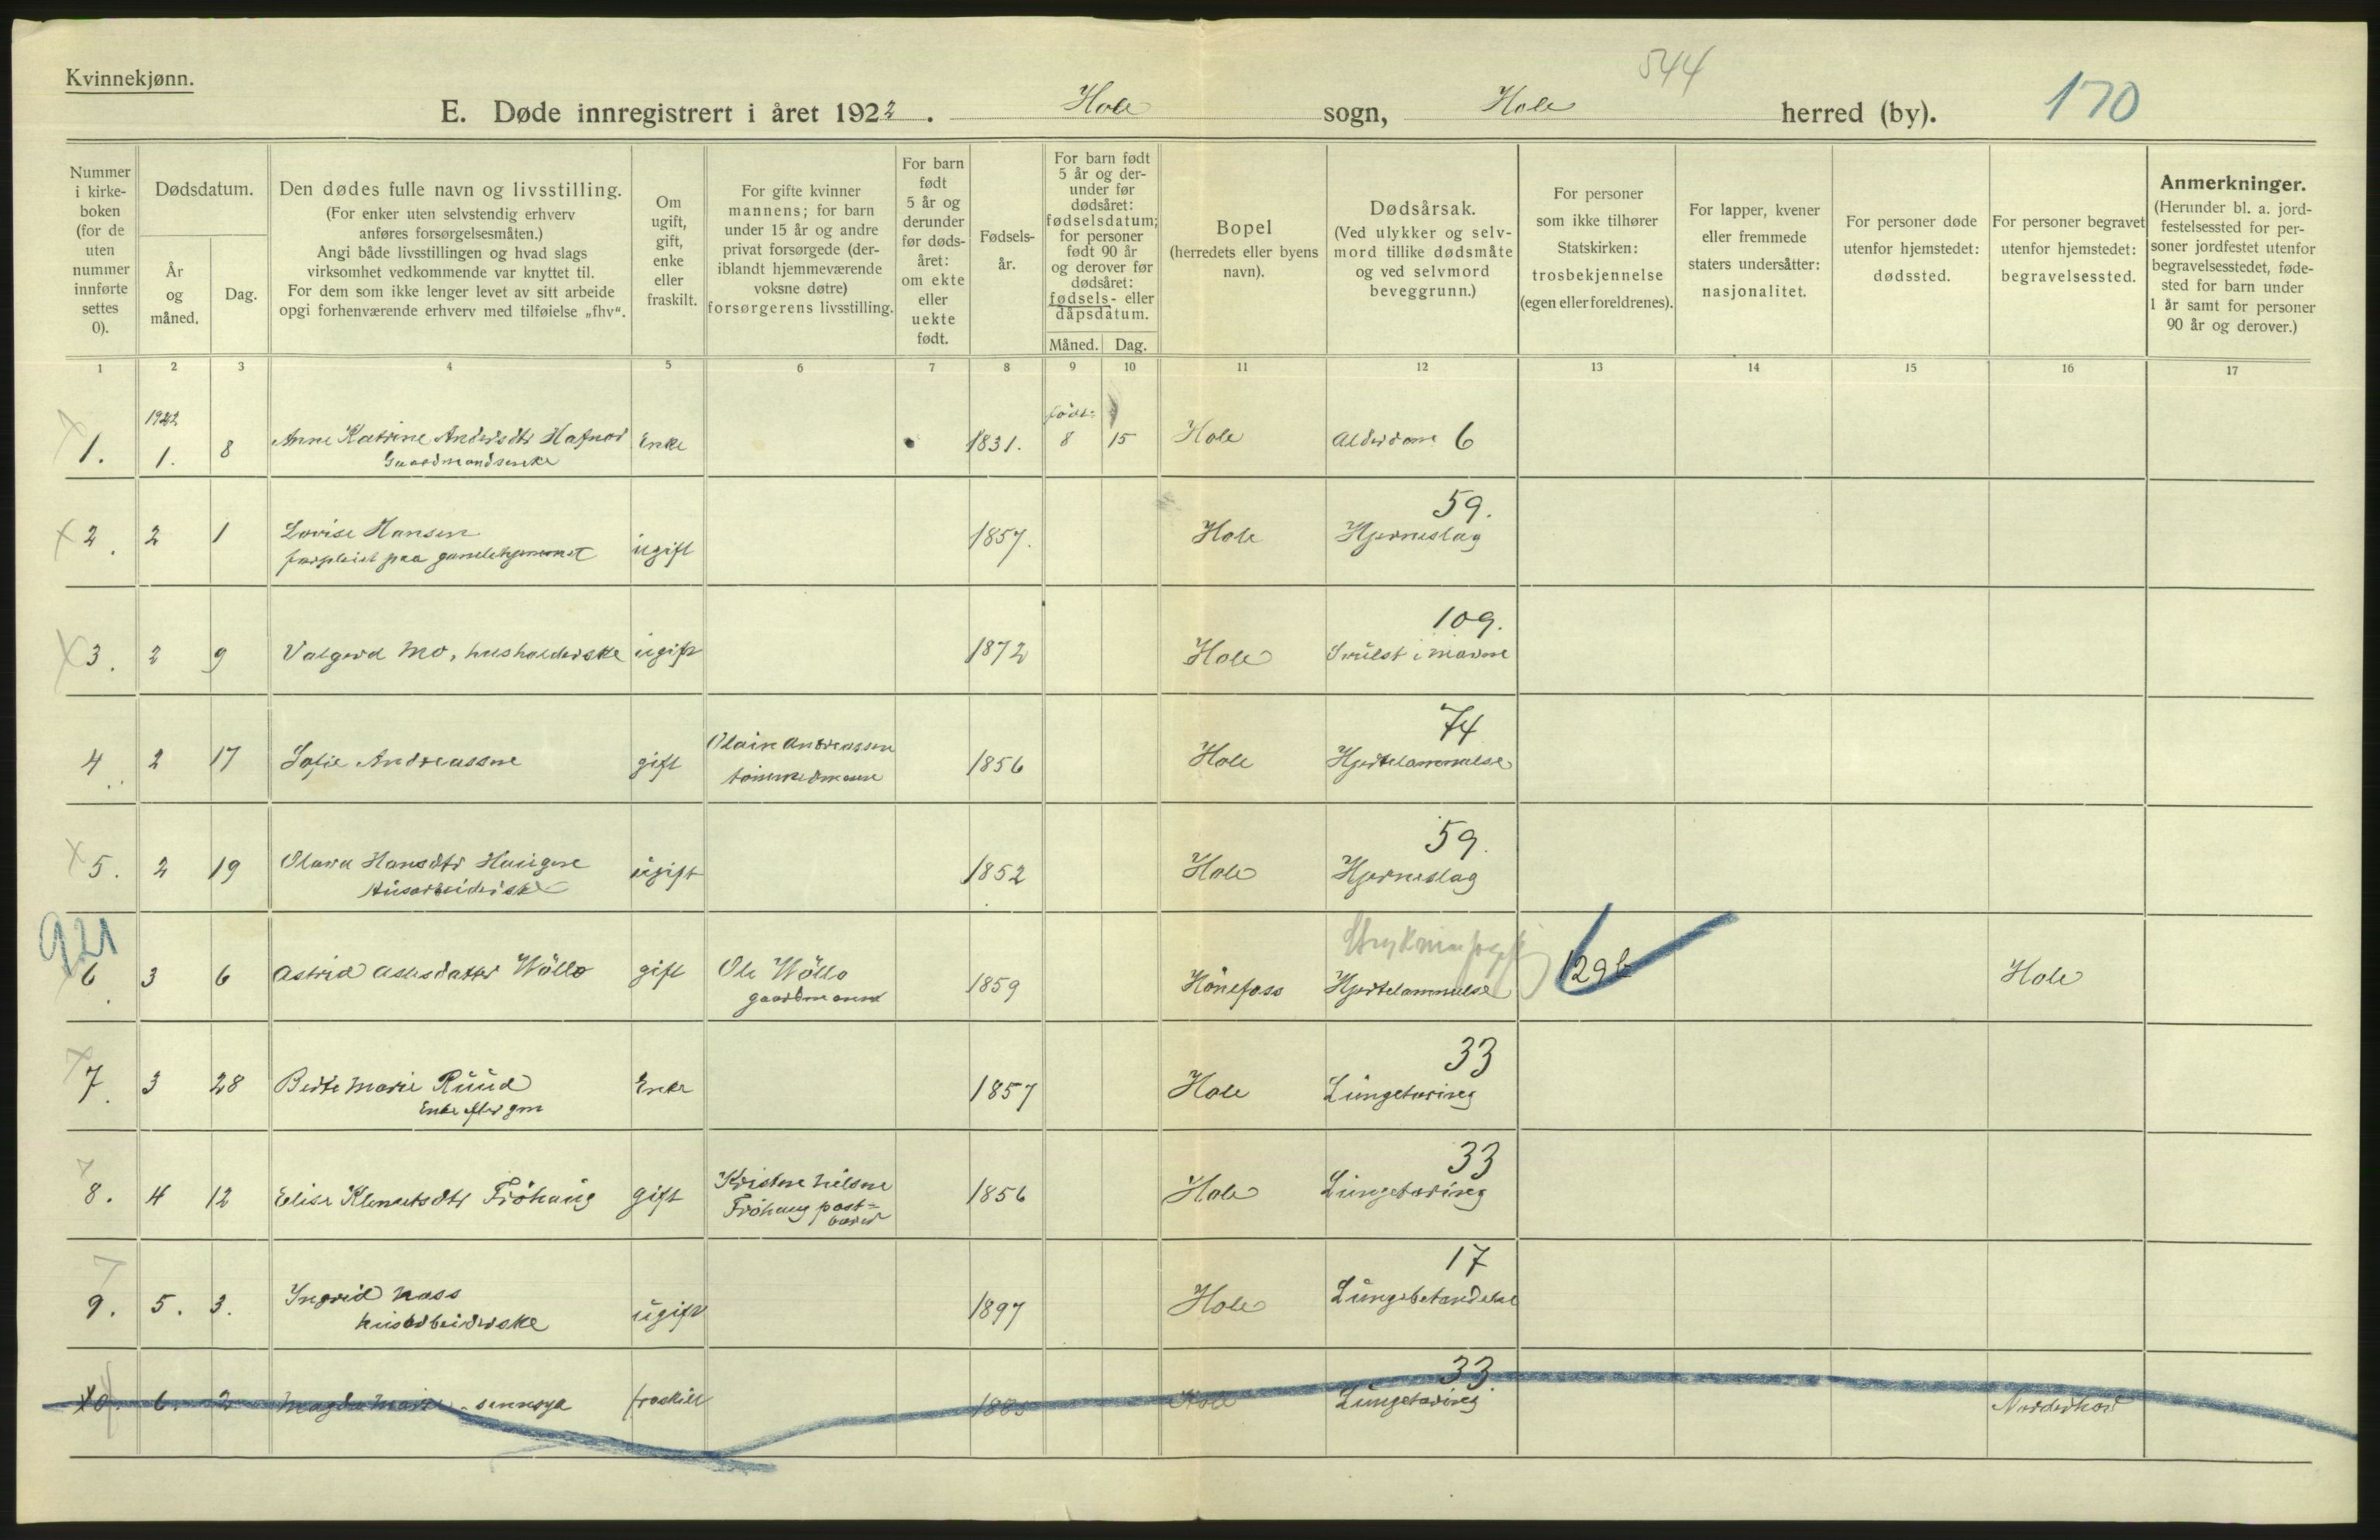 Kvinnekjønn.
544
170
E. Døde innregistrert i året 1922. Hole sogn, Hole herred (by).
Nummer i kirke-boken (for de uten nummer innførte settes 0).
Dødsdatum.
År og måned.
Dag.
Den dødes fulle navn og livsstilling.
(For enker uten selvstendig erhverv anføres forsørgelsesmåten.)
Angi både livsstillingen og hvad slags virksomhet vedkommende var knyttet til.
For dem som ikke lenger levet av sitt arbeide opgi forhenværende erhverv med tilføielse „fhv“.
Om ugift, gift, enke eller fraskilt.
For gifte kvinner mannens; for barn under 15 år og andre privat forsørgede (der-iblandt hjemmeværende voksne døtre) forsørgerens livsstilling.
For barn født 5 år og derunder før døds-året: om ekte eller uekte født.
Fødsels-år.
For barn født 5 år og der-under før dødsåret: fødselsdatum; for personer født 90 år og derover før dødsåret: fødsels- eller dåpsdatum.
Måned. Dag.
Bopel
(herredets eller byens navn).
Dødsårsak.
(Ved ulykker og selv-mord tillike dødsmåte og ved selvmord beveggrunn.)
For personer som ikke tilhører Statskirken: trosbekjennelse (egen eller foreldrenes).
For lapper, kvener eller fremmede staters undersåtter: nasjonalitet.
For personer døde utenfor hjemstedet: dødssted.
For personer begravet utenfor hjemstedet: begravelsessted.
Anmerkninger.
(Herunder bl. a. jord-festelsessted for per-soner jordfestet utenfor begravelsesstedet, føde-sted for barn under 1 år samt for personer 90 år og derover.)
1 2 3 4 5 6 7 8 9 10 11 12 13 14 15 16 17
1922 født:
1. 1. 8 Anne Katrine Andersdtr Hafnor Enke 1831. 8 15 Hole Alderdom 6
Gaardmandsenke
59.
2. 2 1 Lovise Hansen ugift 1857. Hole Hjerneslag
forpleiet paa gamlehjemmet
109.
3. 2 9 Valgerd Mo, husholderske ugift 1872 Hole Svulst i maven
74
4. 2 17 Sofie Andreassen gift Andreassen 1856 Hole Hjertelammelse
tømmermann
59.
5. 2 19 Olava Hansdtr Haugen ugift 1852 Hole Hjerneslag
Husarbeiderske
921
6. 3 6 Astrid Asledatter Wöllo gift Ole Wöllo 1859 Hönefoss Hjertelammelse 129b Hole
gaardmann
33
7. 3 28 Berte Marie Ruud Enke 1857 Hole Lungetæring
Enke efter gm
33
8. 4 12 Elise Klemetsdtr Fröhaug gift Kristen Nilsen 1856 Hole Lungetæring
Fröhaug post-
bærer
17
9. 5. 3. Ingrid Nass ugift 1897 Hole Lungebetendelse
husarbeiderske
33.
10. 6. 2 Magda Marie sinnsyk fraskilt 1885 Hole Lungetæring Norderhov